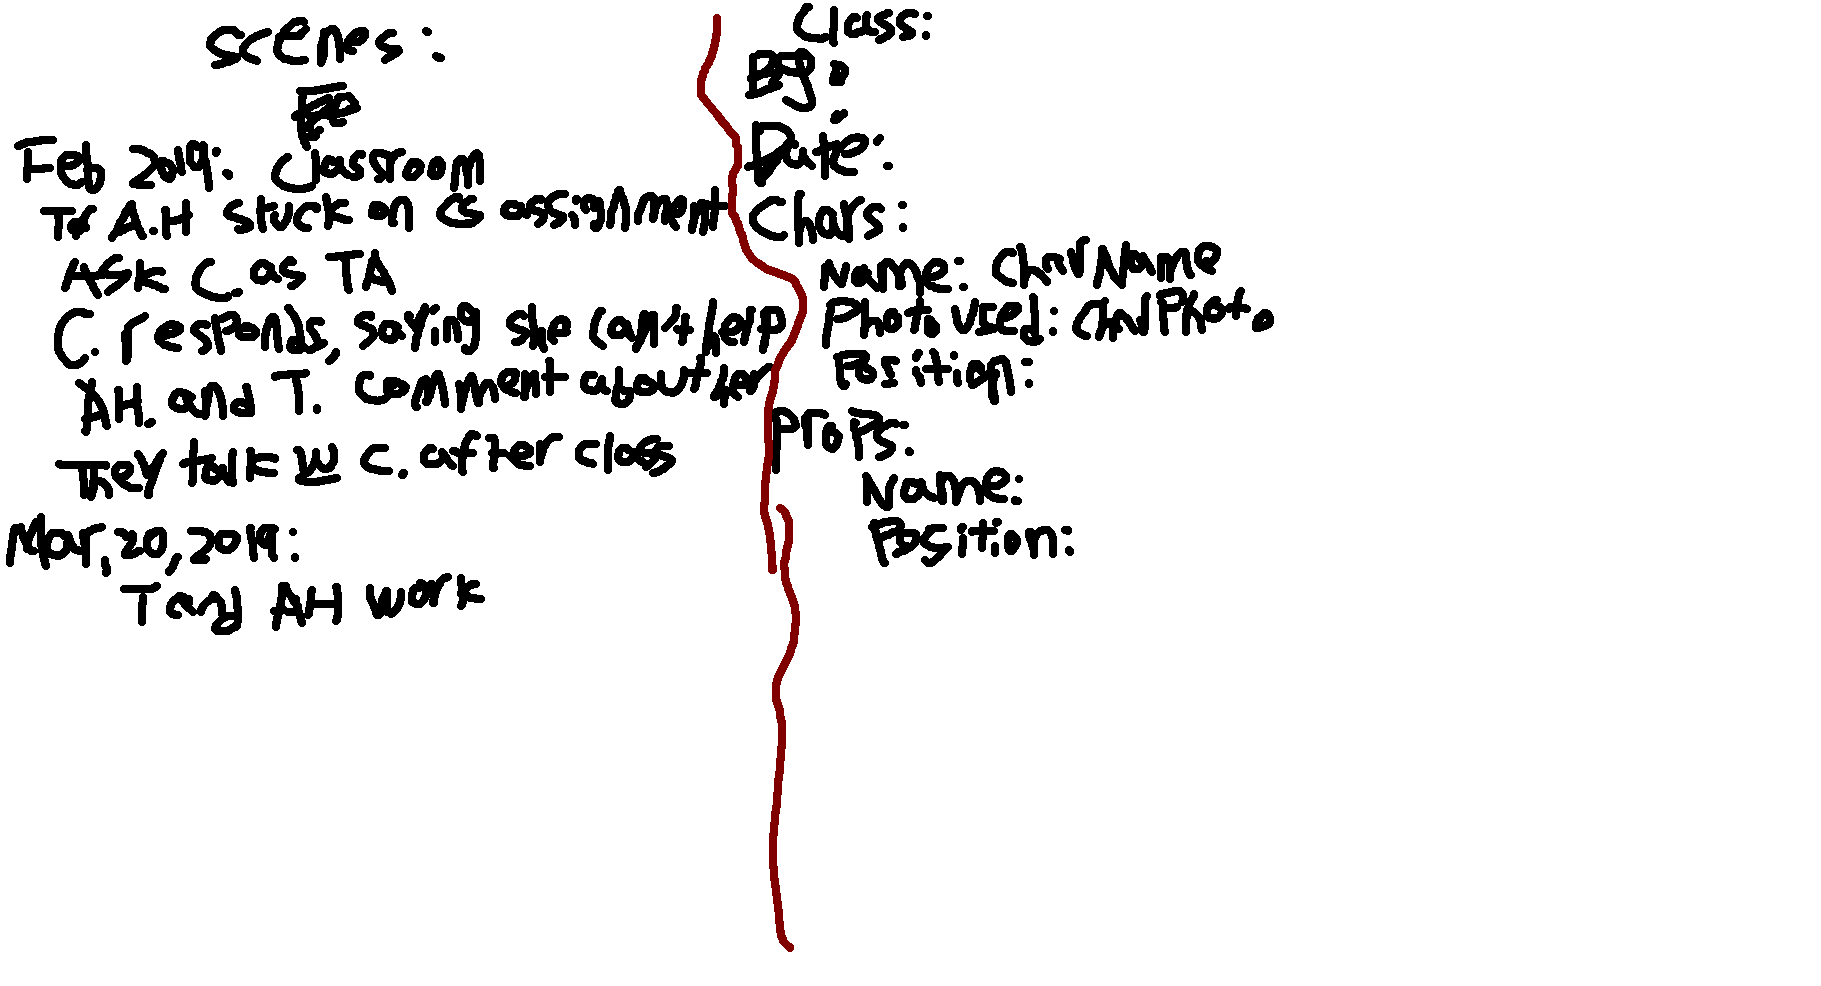 scenes:
Feb 2019: Classroom
T & A.H stuck on CS assignment
Ask C. as TA
C. responds, saying she can't help
AH. and T. comment about her
They talk w C. after class
Mar, 20, 2019:
T and AH work
Class:
Bg:
Date:
Chars:
Name: CharName
Photo Used: CharPhoto
Position:
Props:
Name:
Position: